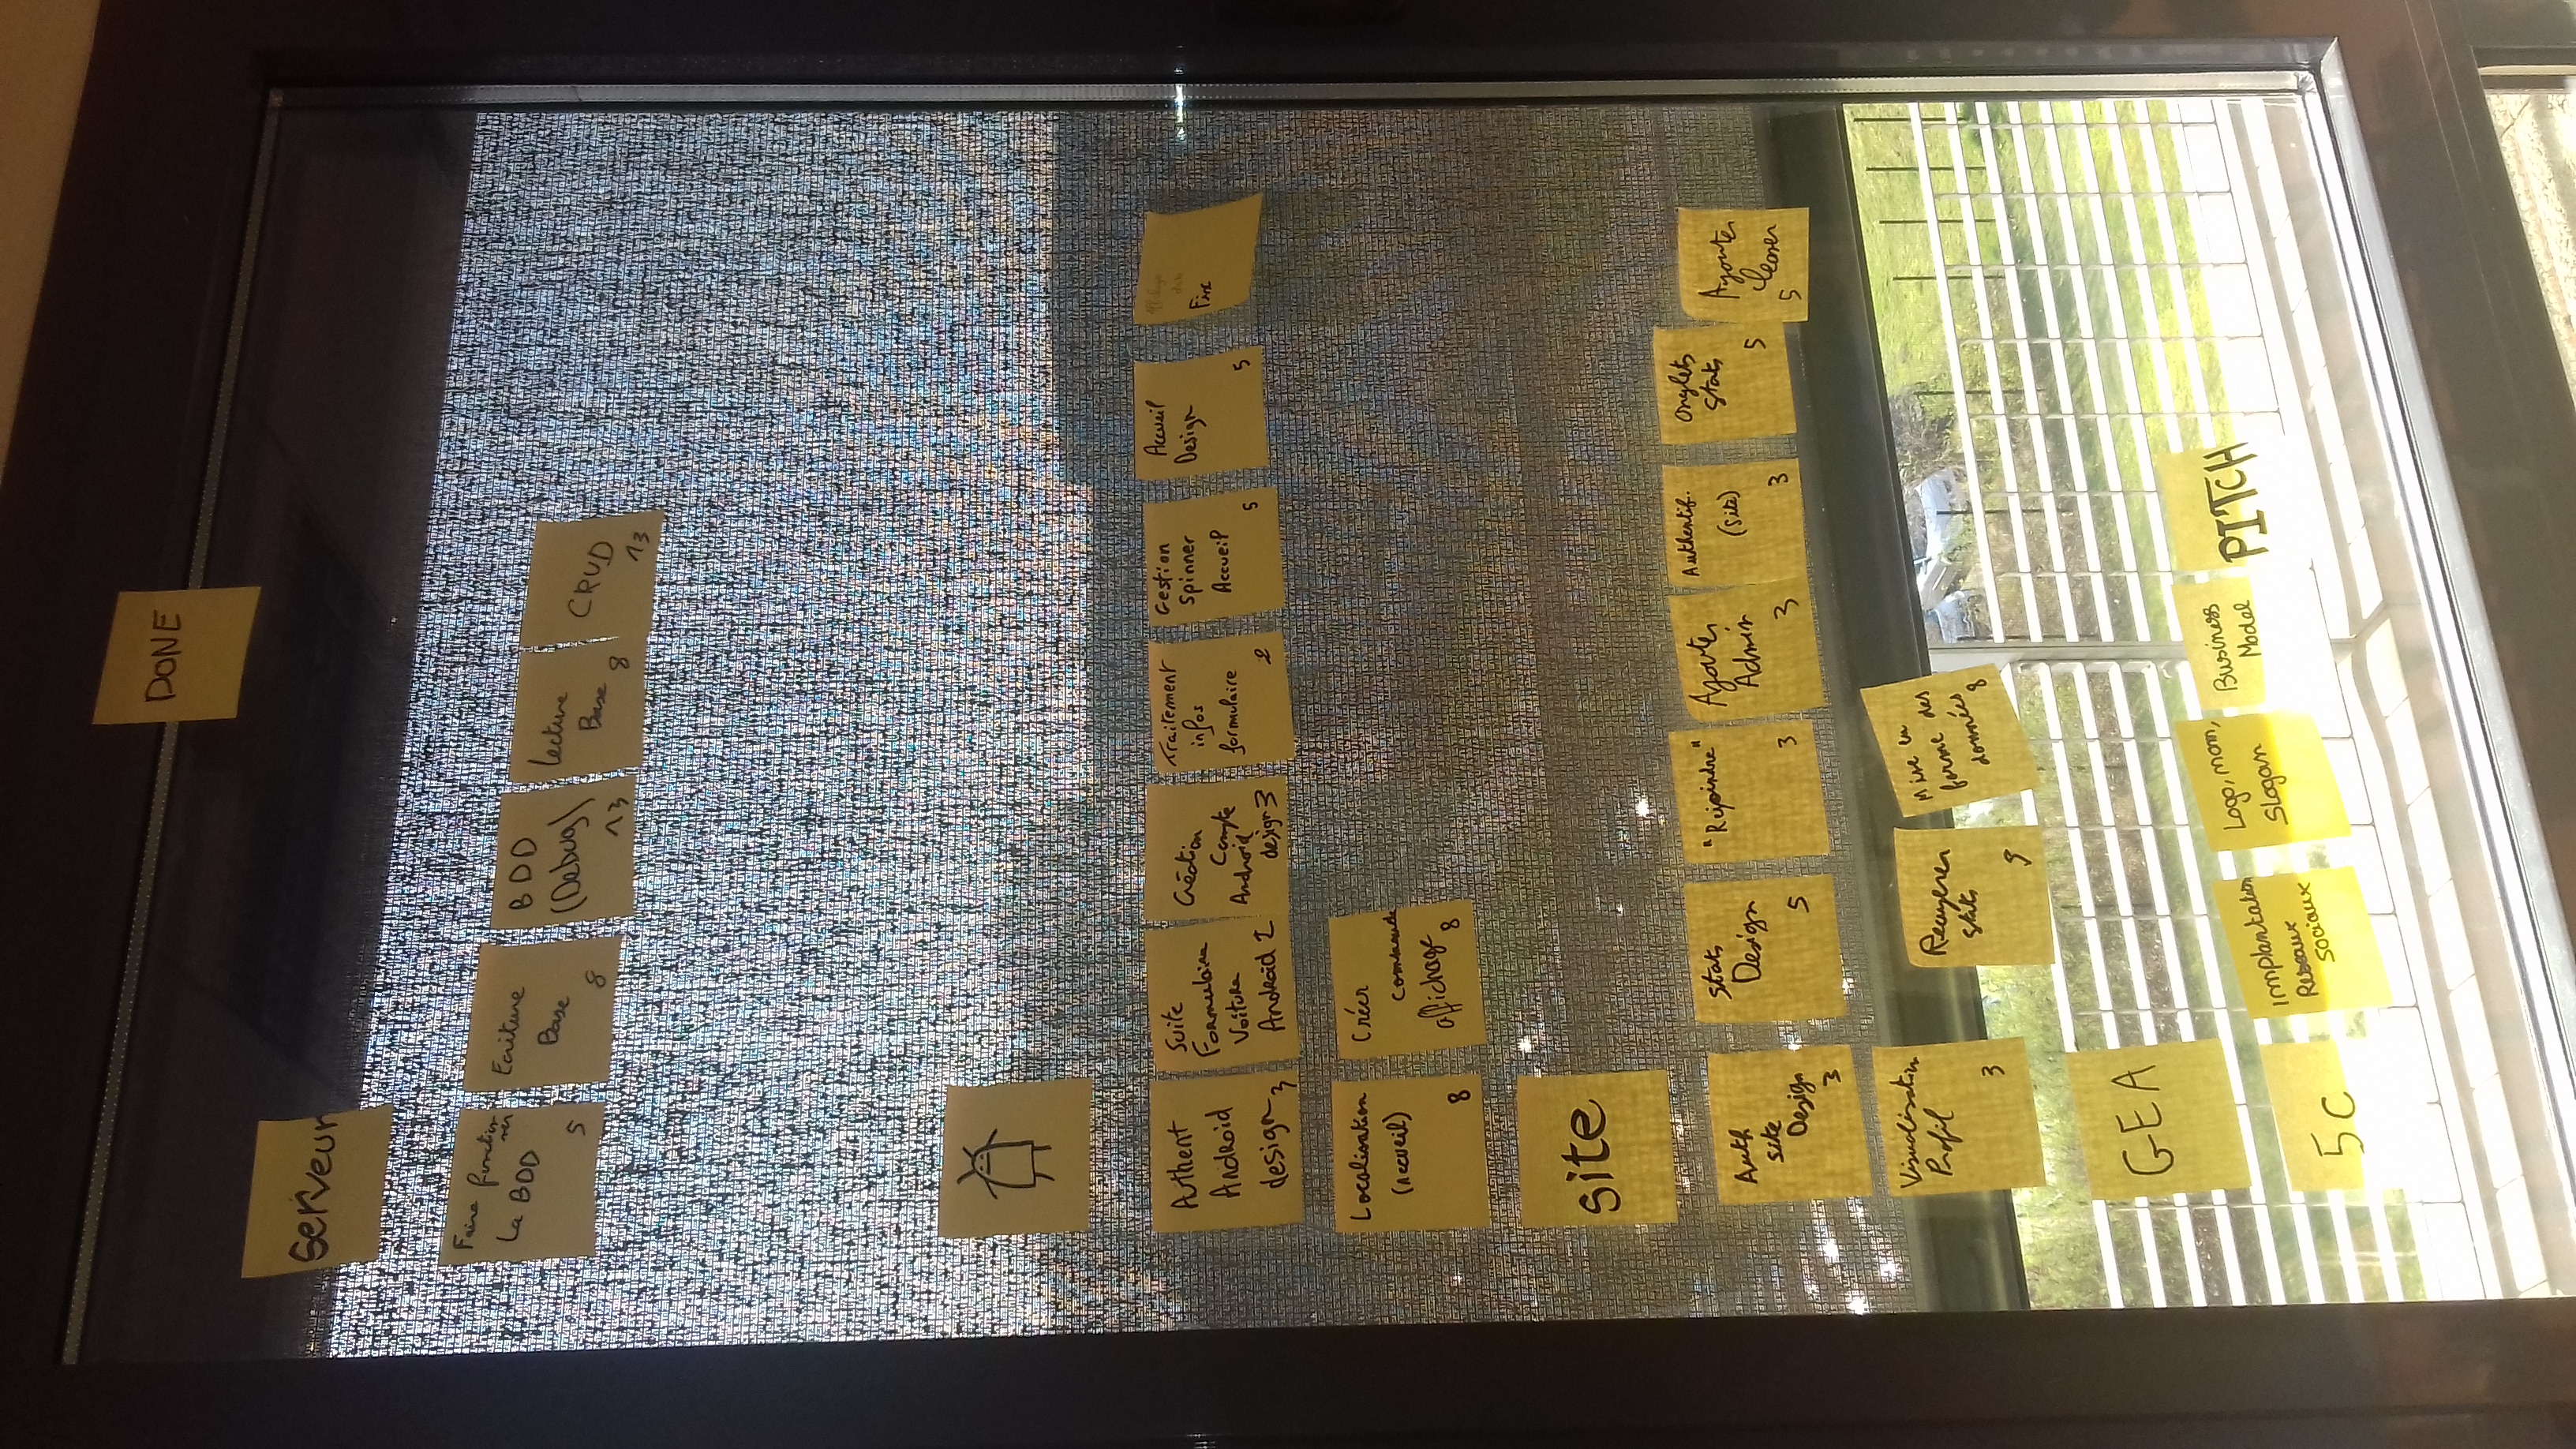 DONE
Serveur
Faire fonction
ner
La BDD
5
Ecriture
Base
8
BDD
(Debug)
13
Lecture
Base
8
CRUD
13
Authent
Android
design
3
Suite
Formulaire
Voiture
Android 2
Création
Compte
Android
design 3
Traitement
infos
formulaire
2
Gestion
Spinner
Accueil
5
Accueil
Design
5
Localisation
(Accueil)
8
Créer
commande
affichage
8
site
Auth
site
Design
3
Stats
Design
5
"Rejoindre"
3
Ajouter
Admin
3
Authentif.
(Site)
3
Onglets
Stats
5
Ajouter
5
Visualisation
Profil
3
stats
Mise en
forme des
données
8
GEA
5C
Implantation
Reseaux
sociaux
Logo, nom,
Slogan
Business
Model
PITCH